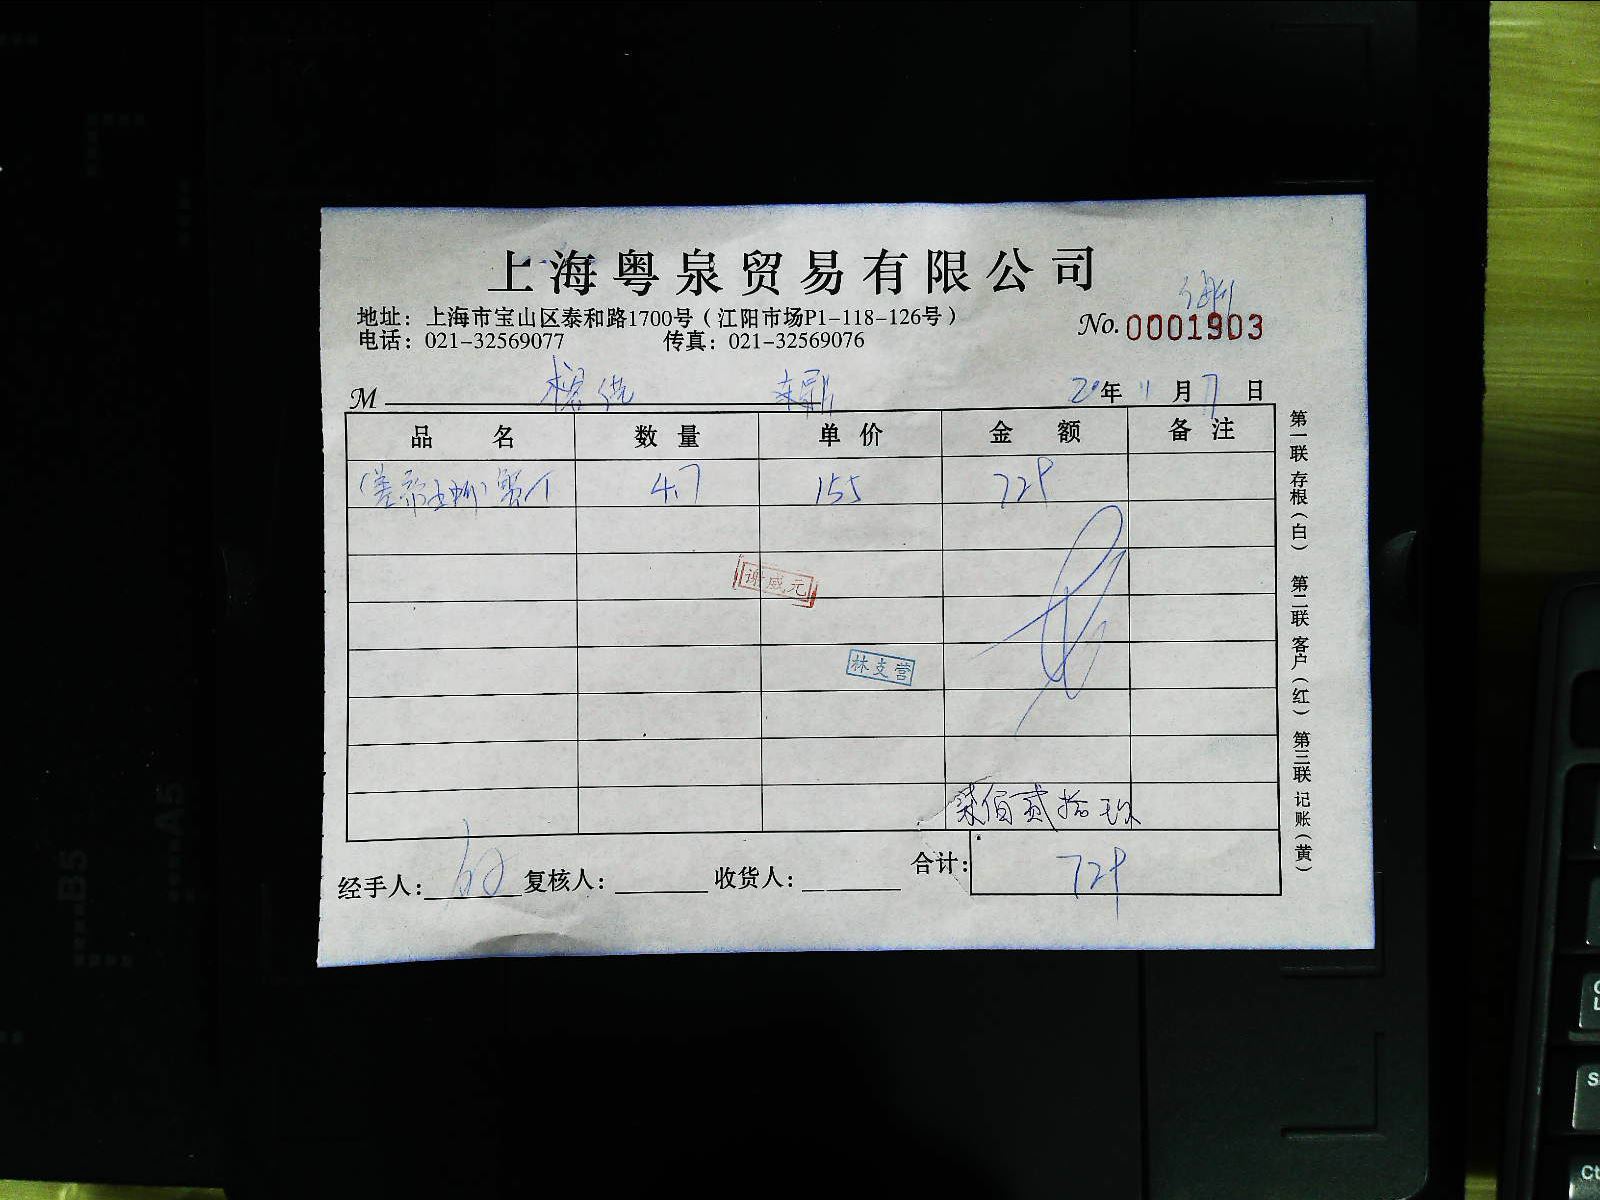 上海粤泉贸易有限公司
地址：上海市宝山区泰和路1700号（江阳市场P1-118-126号）
电话：021-32569077 传真：021-32569076
No. 0001903
M
年 11 月 7 日
品名 数量 单价 金额 备注
4.7 155 729
谢盛元
林支营
柒佰贰拾玖
合计： 729
经手人： 复核人： 收货人：
第一联 存根（白） 第二联 客户（红） 第三联 记账（黄）
B5
A5